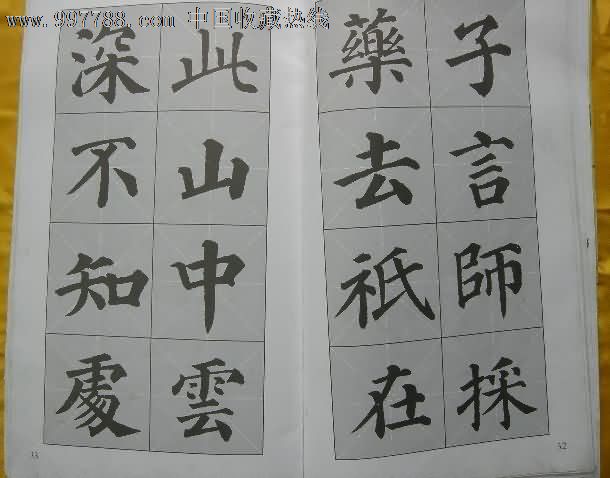 www.997788.com 中国收藏热线
子言師採
藥去祇在
32
此山中雲
深不知處
33